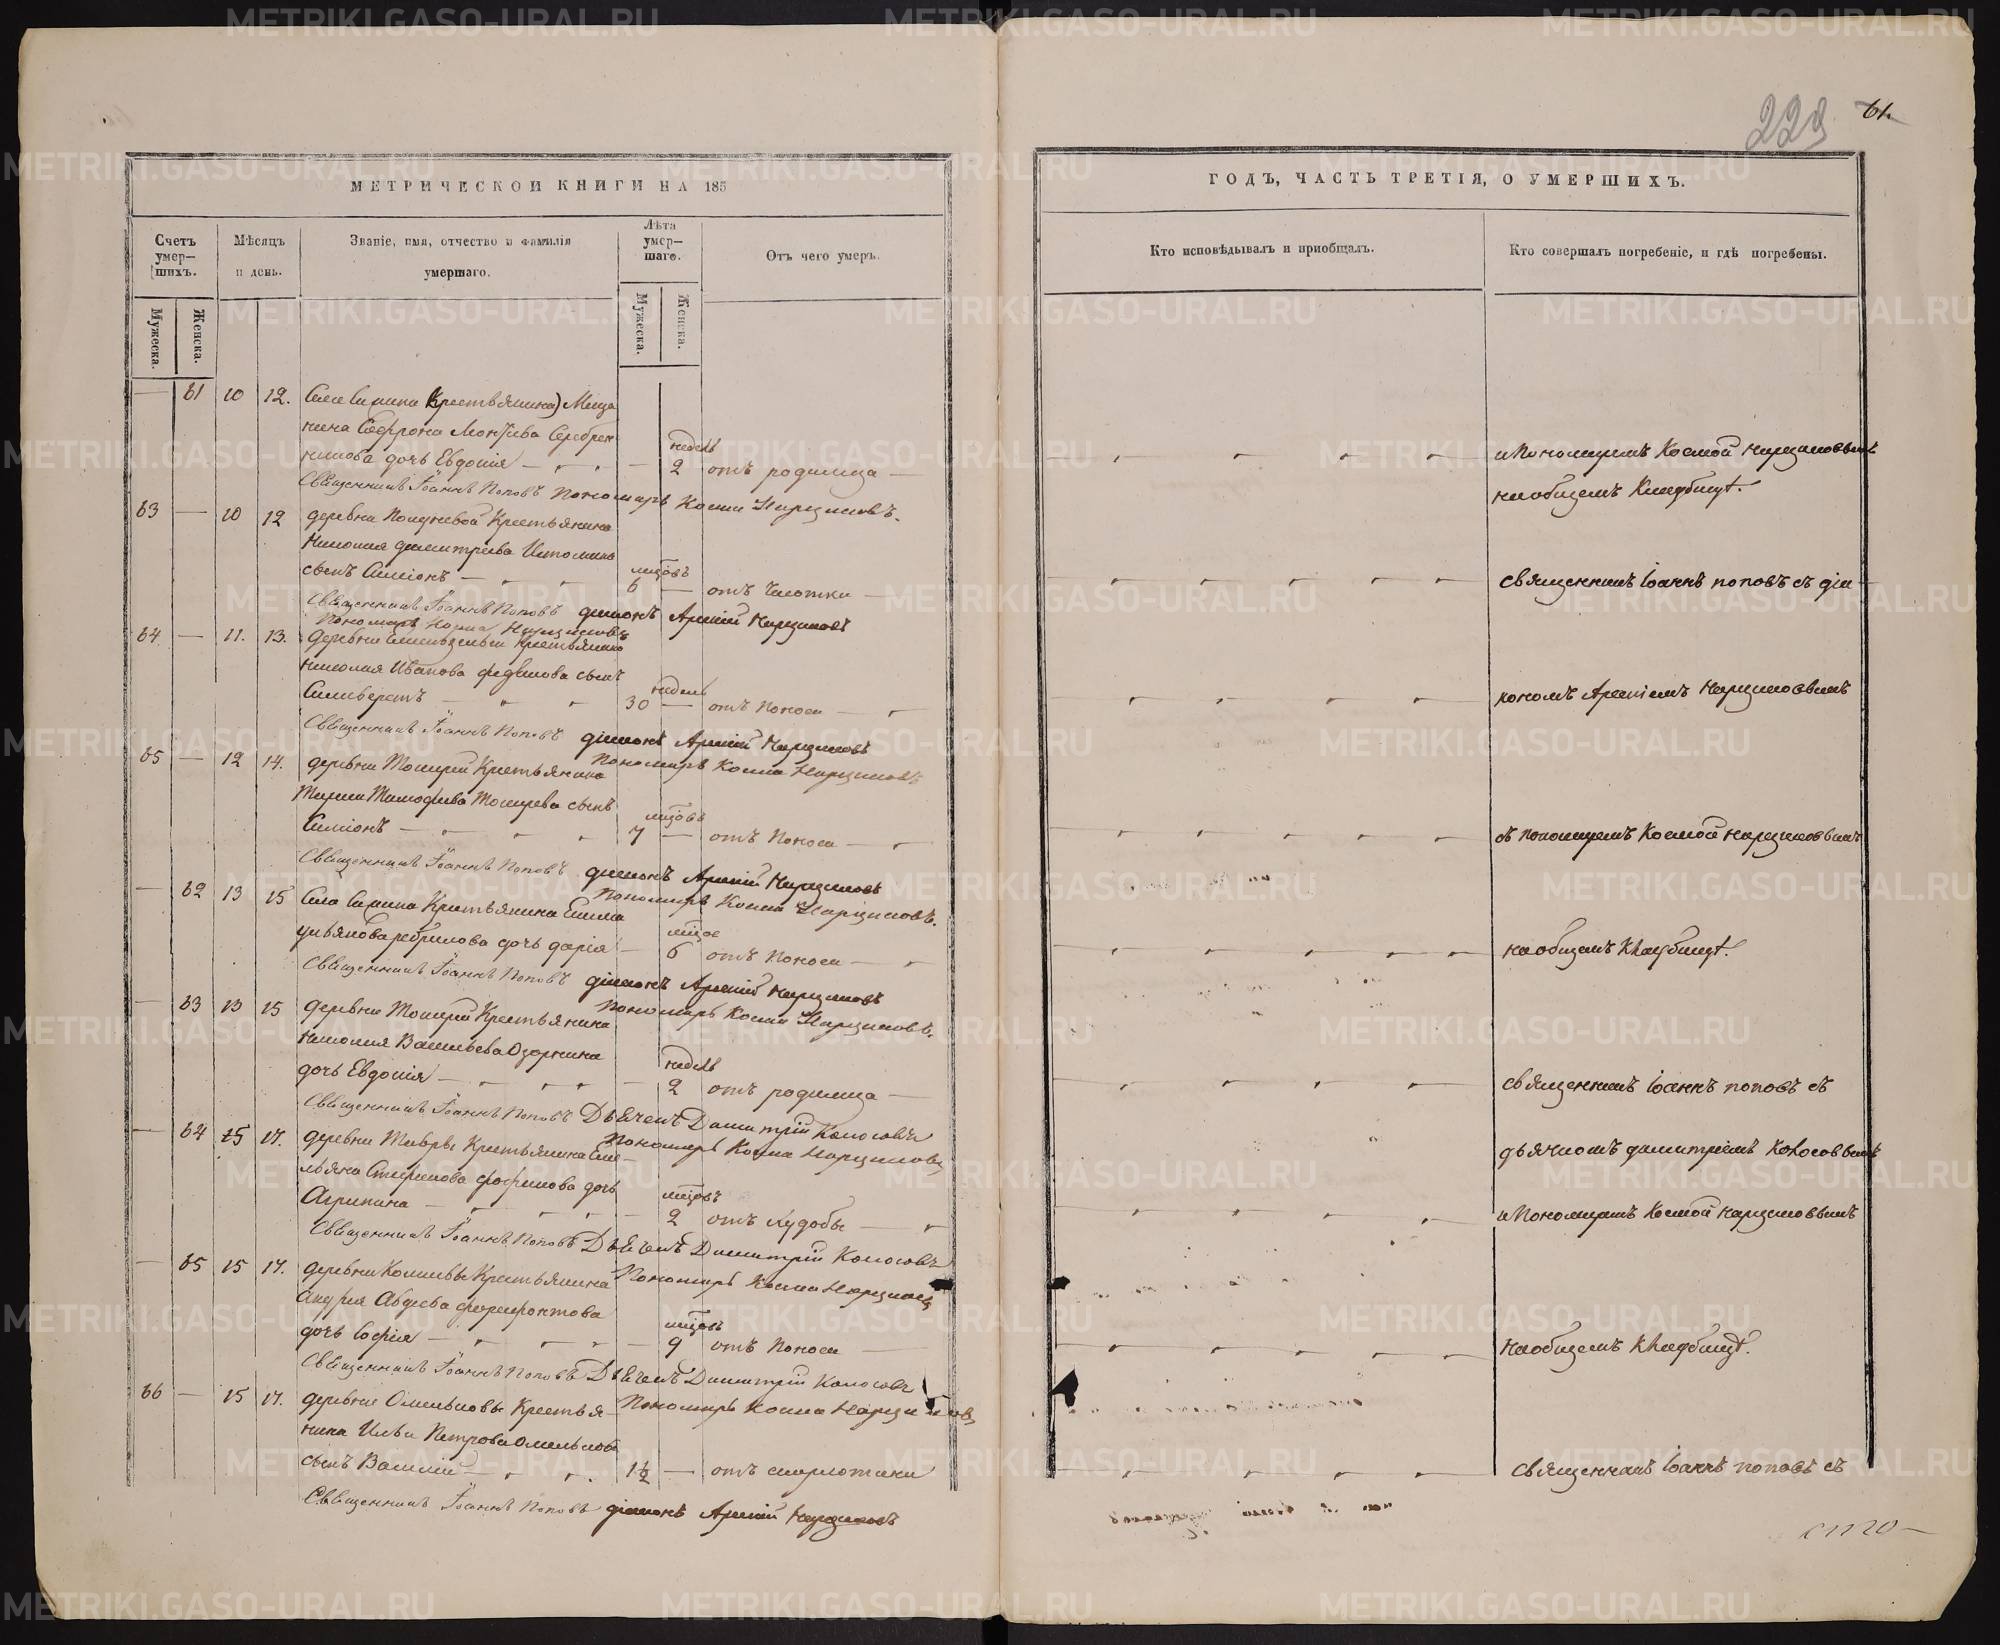 229
61.
МЕТРИЧЕСКОЙ КНИГИ НА 185
ГОДЪ, ЧАСТЬ ТРЕТІЯ, О УМЕРШИХЪ.
Счетъ умер—шихъ.
Мѣсяцъ и день.
Званіе, имя, отчество и фамилія умершаго.
Лѣта умер—шаго.
Отъ чего умеръ.
Кто исповѣдывалъ и пріобщалъ.
Кто совершалъ погребеніе, и гдѣ погребены.
Мужеска.
Женска.
Мужеска.
Женска.
— 61 10 12. Крестьянина) Меща
нина Серебрен
никова дочь Евдокія — недель 2 отъ родимца —
Священникъ Іоаннъ Поповъ Пономарь Косма Нарциссовъ.
и Пономаремъ Космой Нарциссовымъ
на общемъ Кладбищѣ.
63 — 10 12 деревни Крестьянина
Николая Димитріева Истомина
сынъ Симеонъ — мѣсяцовъ 6 — отъ Чахотки
Священникъ Іоаннъ Поповъ діаконъ Арсеній Нарциссовъ
Пономарь Косма Нарциссовъ
священникъ Іоаннъ поповъ съ діа—
64 — 11. 13. деревни Крестьянина
Николая Иванова сынъ
Силиверстъ — недель 30 — отъ Поноса —
Священникъ Іоаннъ Поповъ діаконъ Арсеній Нарциссовъ
Пономарь Косма Нарциссовъ
кономъ Арсеніемъ Нарциссовымъ
65 — 12 14. деревни Токарей Крестьянина
Тимофеева Токарева сынъ
Симеонъ — мѣсяцовъ 7 — отъ Поноса —
Священникъ Іоаннъ Поповъ діаконъ Арсеній Нарциссовъ
Пономарь Косма Нарциссовъ.
съ пономаремъ Космой Нарциссовымъ
— 62 13 15 Села Крестьянина
дочь Дарія — 6 отъ Поноса —
Священникъ Іоаннъ Поповъ діаконъ Арсеній Нарциссовъ
Пономарь Косма Нарциссовъ.
на общемъ Кладбищѣ.
— 63 13 15 деревни Токарей Крестьянина
Николая Васильева Озорнина
дочь Евдокія — недель 2 отъ родимца —
Священникъ Іоаннъ Поповъ Дьячекъ Димитрій Колосовъ
Пономарь Косма Нарциссовъ
священникъ Іоаннъ поповъ съ
— 64 15 17. деревни Крестьянина Еме—
льяна дочь
Агрипина — мѣсяцовъ 2 отъ Худобы —
Священникъ Іоаннъ Поповъ Дьячекъ Димитрій Колосовъ
Пономарь Косма Нарциссовъ
дьячкомъ димитріемъ Колосовымъ
и Пономаремъ Космой Нарциссовымъ
— 65 15 17. деревни Крестьянина
Андрея Авдеева
дочь Софія — мѣсяцовъ 9 отъ Поноса —
Священникъ Іоаннъ Поповъ Дьячекъ Димитрій Колосовъ
Пономарь Косма Нарциссовъ
на общемъ Кладбищѣ.
66 — 15 17. деревни Омельковы Крестья—
нина Ильи Петрова Омелькова
сынъ Василій — 1½ — отъ скарлотины
Священникъ Іоаннъ Поповъ діаконъ Арсеній Нарциссовъ
священникъ Іоаннъ поповъ съ
METRIKI.GASO-URAL.RU